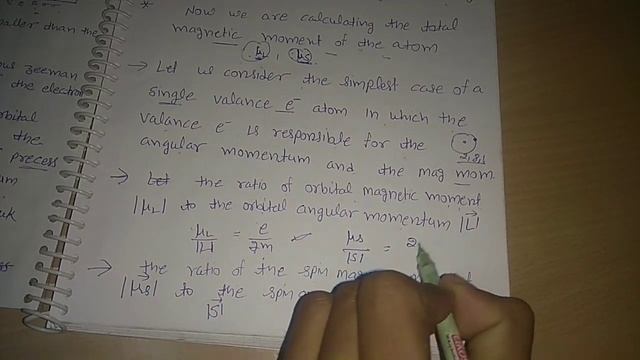 aller than the
us zeeman
the electron
orbital
the
precess
* Now we are calculating the total
magnetic moment of the atom
μL, μs
→ Let us consider the simplest case of a
single valance e⁻ atom in which the
valance e⁻ is responsible for the
angular momentum and the mag mom
→ Let the ratio of orbital magnetic moment
|μL| to the orbital angular momentum |L|
μL/|L| = e/2m ✓ μs/|S| = 2
→ the ratio of the spin
|μs| to the spin
|S|